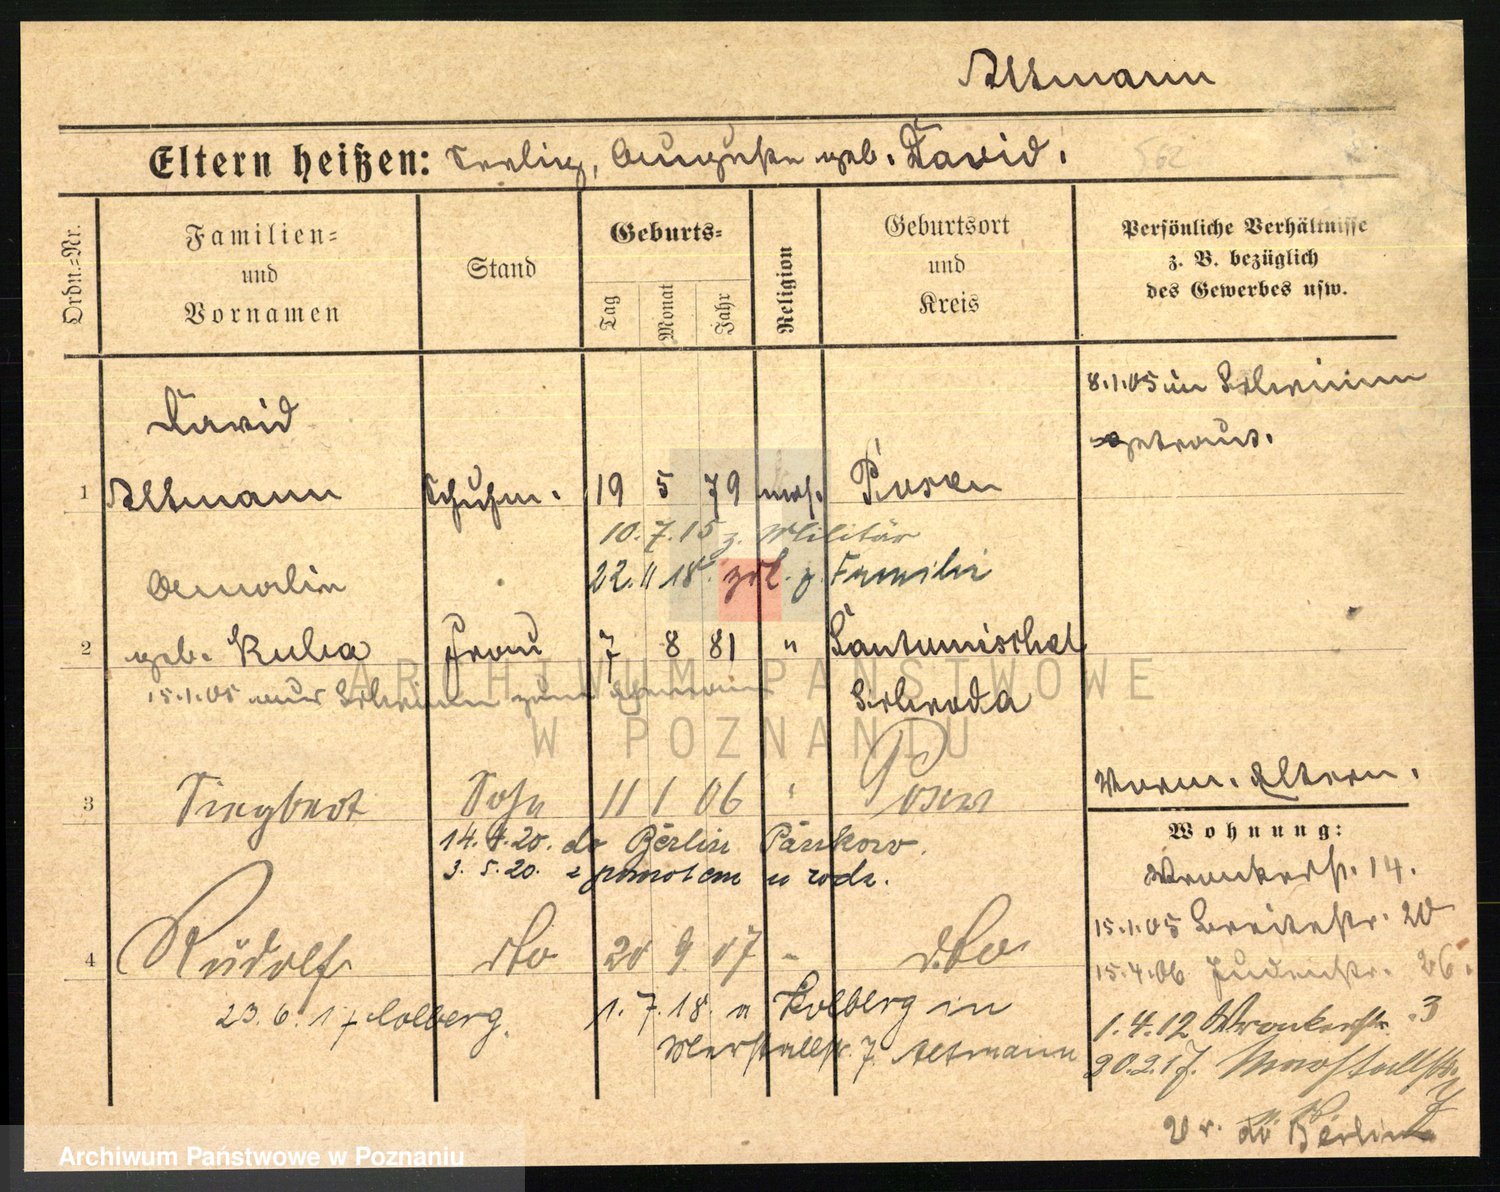 Altmann
Eltern heißen: Seelig, Auguste geb. David.
562
Ordn.=Nr.
Familien=
und
Vornamen
Stand
Geburts=
Tag
Monat
Jahr
Religion
Geburtsort
und
Kreis
Persönliche Verhältnisse
z. B. bezüglich
des Gewerbes usw.
8.1.05 in Schwerin
getraut.
David
1 Altmann Schuhm. 19 5 79 mos. Posen
10.7.15 z. Militär
22.11 18. z. Familie
Amalie
2 geb. Kuba Frau 7 8 81 " Santomischel
15.1.05 aus Schwerin zum Ehemann
Schroda
3 Siegbert Sohn 11 1 06 " Posen
Vorm. Eltern.
14.4.20. do Berlin Pankow.
3. 5. 20. z powrotem u rodz.
Wohnung:
Wronkerstr. 14.
15.1.05 Breitestr. 20
4 Rudolf dto 20 9 07 " dto
15.4.06 Judenstr. 26.
23.6.17 Colberg.
1.7.18. a Kolberg in
1.4.12 Wronkerstr. 3
Marstallstr. 7. Altmann
20.2.17. Marstallstr. 7
do Berlin
ARCHIWUM PAŃSTWOWE
W POZNANIU
Archiwum Państwowe w Poznaniu